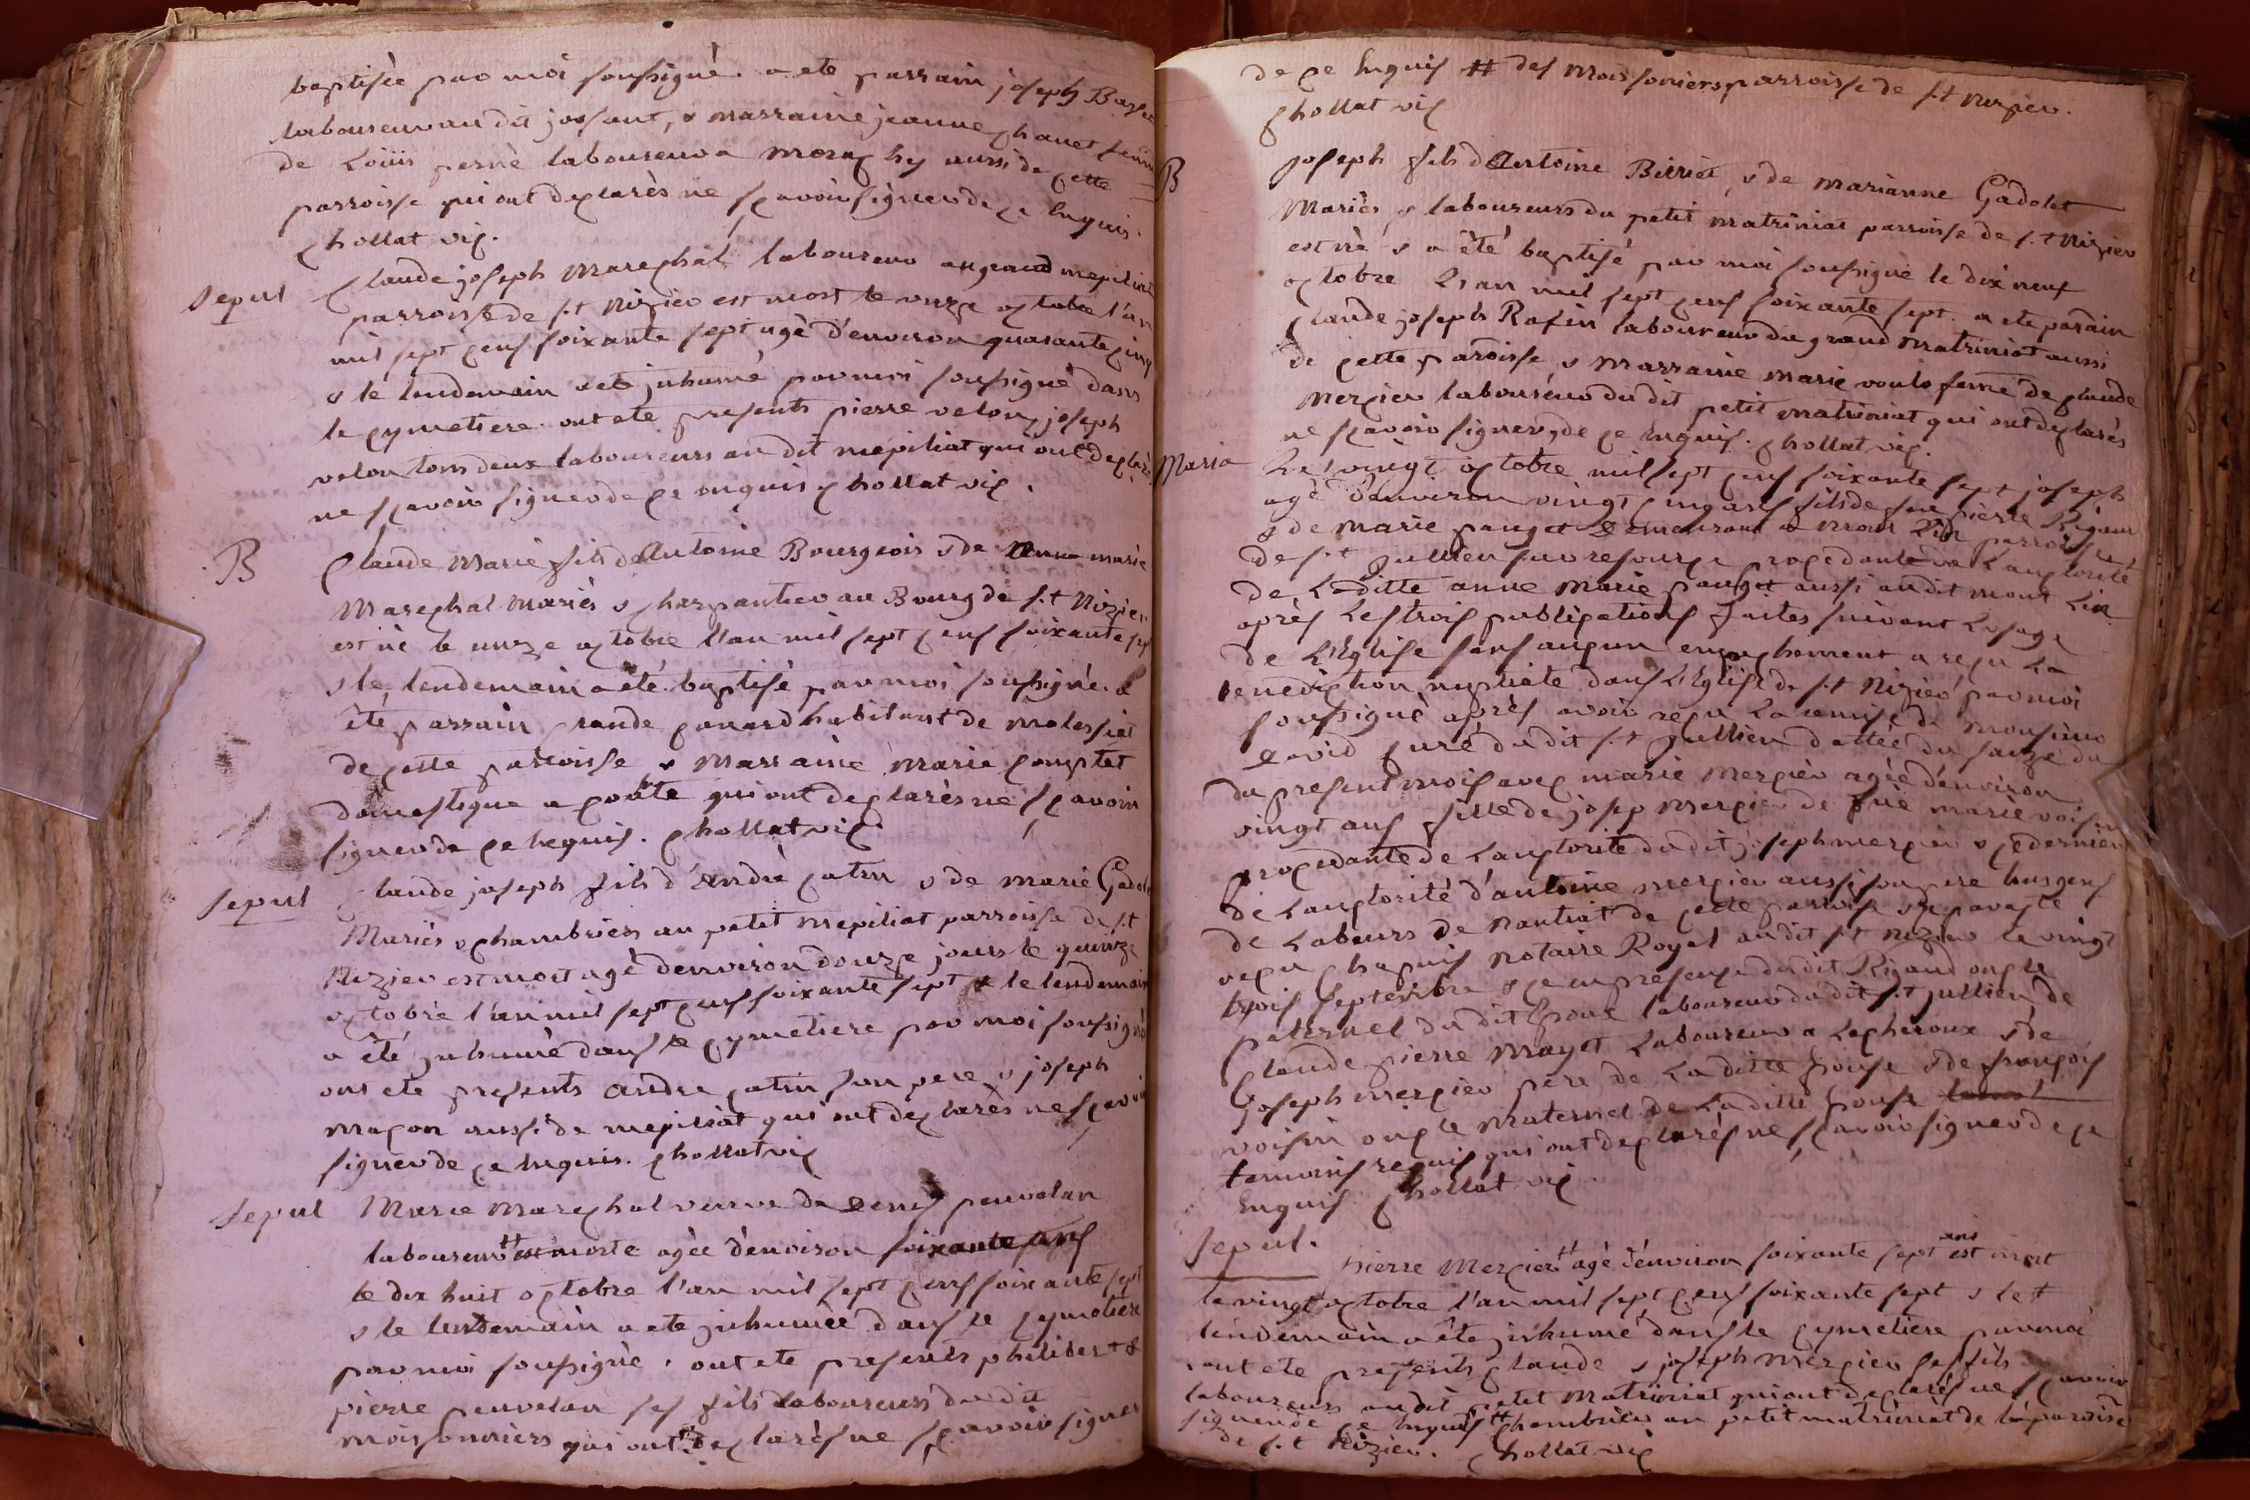 baptisée par moi soussigné. a ete parrain joseph
laboureur au dit jossant, & marraine jeanne chanet
de Loüis perné laboureur a moraz hy aussi de cette
parroisse qui ont declarès ne sçavoir signer de ce Enquis.
chollat vic.
Sepul
Claude joseph Marechal laboureur au grand mepiliat
parroisse de s.t Nizier est mort le onze octobre l'an
mil sept cens soixante sept agè d'environ quarante cinq
& le lendemain a ete inhumé par moi soussigné dans
le cymetiere. ont ete presents pierre velon, joseph
velon tous deux laboureurs au dit mepiliat qui ont declaré
ne sçavoir signer de ce enquis chollat vic.
B
Claude Marie fils d'Antoine Bourgeois & de Anne marie
Marechal Mariès & charpantier au Bourg de s.t Nizier
est né le onze octobre l'an mil sept cens soixante sept
& le lendemain a été baptisé par moi soussigné. a
été parrain Claude gonard habitant de malessiat
de cette parroisse & marraine marie comptet
domestique a coute qui ont declarès ne sçavoir
signer de ce Enquis. chollat vic
Sepul
Claude joseph fils d'André catin & de marie Gadolet
Mariès & chambriers au petit mepiliat parroisse de s.t
Nizier est mort agé denviron douze jours le quinze
octobre l'an mil sept cens soixante sept & le lendemain
a été inhumé dans le cymetiere par moi soussigné
ont ete presents andre catin son pere & joseph
maçon aussi de mepiliat qui ont declarès ne sçavoir
signer de ce Enquis. chollat vic
Sepul
Marie Marechal veuve de Denis peuvelan
laboureur # est morte agèe d'environ soixante ans
le dix huit octobre l'an mil sept cens soixante sept
& le lendemain a ete inhumée dans le cymetiere
par moi soussigné. ont ete presents philibert &
pierre peuvelan ses fils laboureurs du dit
moissonniers qui ont declarès ne sçavoir signer
de ce Enquis # des moissoniers parroisse de s.t nizier.
chollat vic
B
joseph fils d'Antoine Birriat, & de marianne Gadolet
Mariès & laboureurs du petit matriniat parroisse de s.t Nizier
est né & a été baptisé par moi soussigné le dix neuf
octobre L'an mil sept cens soixante sept. a ete parain
Claude joseph Rafin laboureur du grand matriniat aussi
de cette paroisse, & marraine marie femme de claude
mercier laboureur du dit petit matriniat qui ont declarès
ne sçavoir signer, de ce Enquis. chollat vic.
Maria
Le vingt octobre mil sept cens soixante sept joseph
agé d'environ vingt cinq ans fils de feu pierre Rigaud
& de marie pauget demeurant a mont Lin parroisse
de s.t jullien sur resourze procedant de L'authorité
de Laditte anne marie pauget aussi audit mont Lin
après Les trois publications faites suivant Lusage
de L'Eglise sans aucun empechement a reçu La
benediction nuptiale dans L'Eglise de s.t Nizier par moi
soussigné après avoir reçu La remise de monsieur
david curé du dit s.t jullien dattée du saize du
du present mois avec marie mercier agèe denviron
vingt ans fille de josep mercier de feüe marie voisin
procedante de Lauthorité du dit joseph mercier & ce dernier
de Lauthorité d'antoine mercier aussi son pere
de Labeurs de nantiat de cette paroisse
reçu chapuis notaire Royal au dit s.t nizier le vingt
trois septembre & ce en presence du dit Rigaud oncle
paternel du dit Epoux laboureur du dit s.t jullien de
Claude pierre mayet Laboureur a Lecheroux & de
joseph mercier pere de La ditte Epouse & de françois
voisin oncle maternel de La ditte Epouse
temoins requis qui ont declarés ne sçavoir signer de ce
Enquis chollat vic.
Sepul.
Pierre Mercier # agé d'environ soixante sept ans est mort
le vingt octobre l'an mil sept cens soixante sept & le
lendemain a été inhumé dans le cymetiere par moi
ont ete presents claude & joseph mercier ses fils
laboureurs au dit petit matriniat qui ont declarés ne sçavoir
signer de ce Enquis # chambrier au petit matriniat de la paroisse
de s.t Nizier. chollat vic